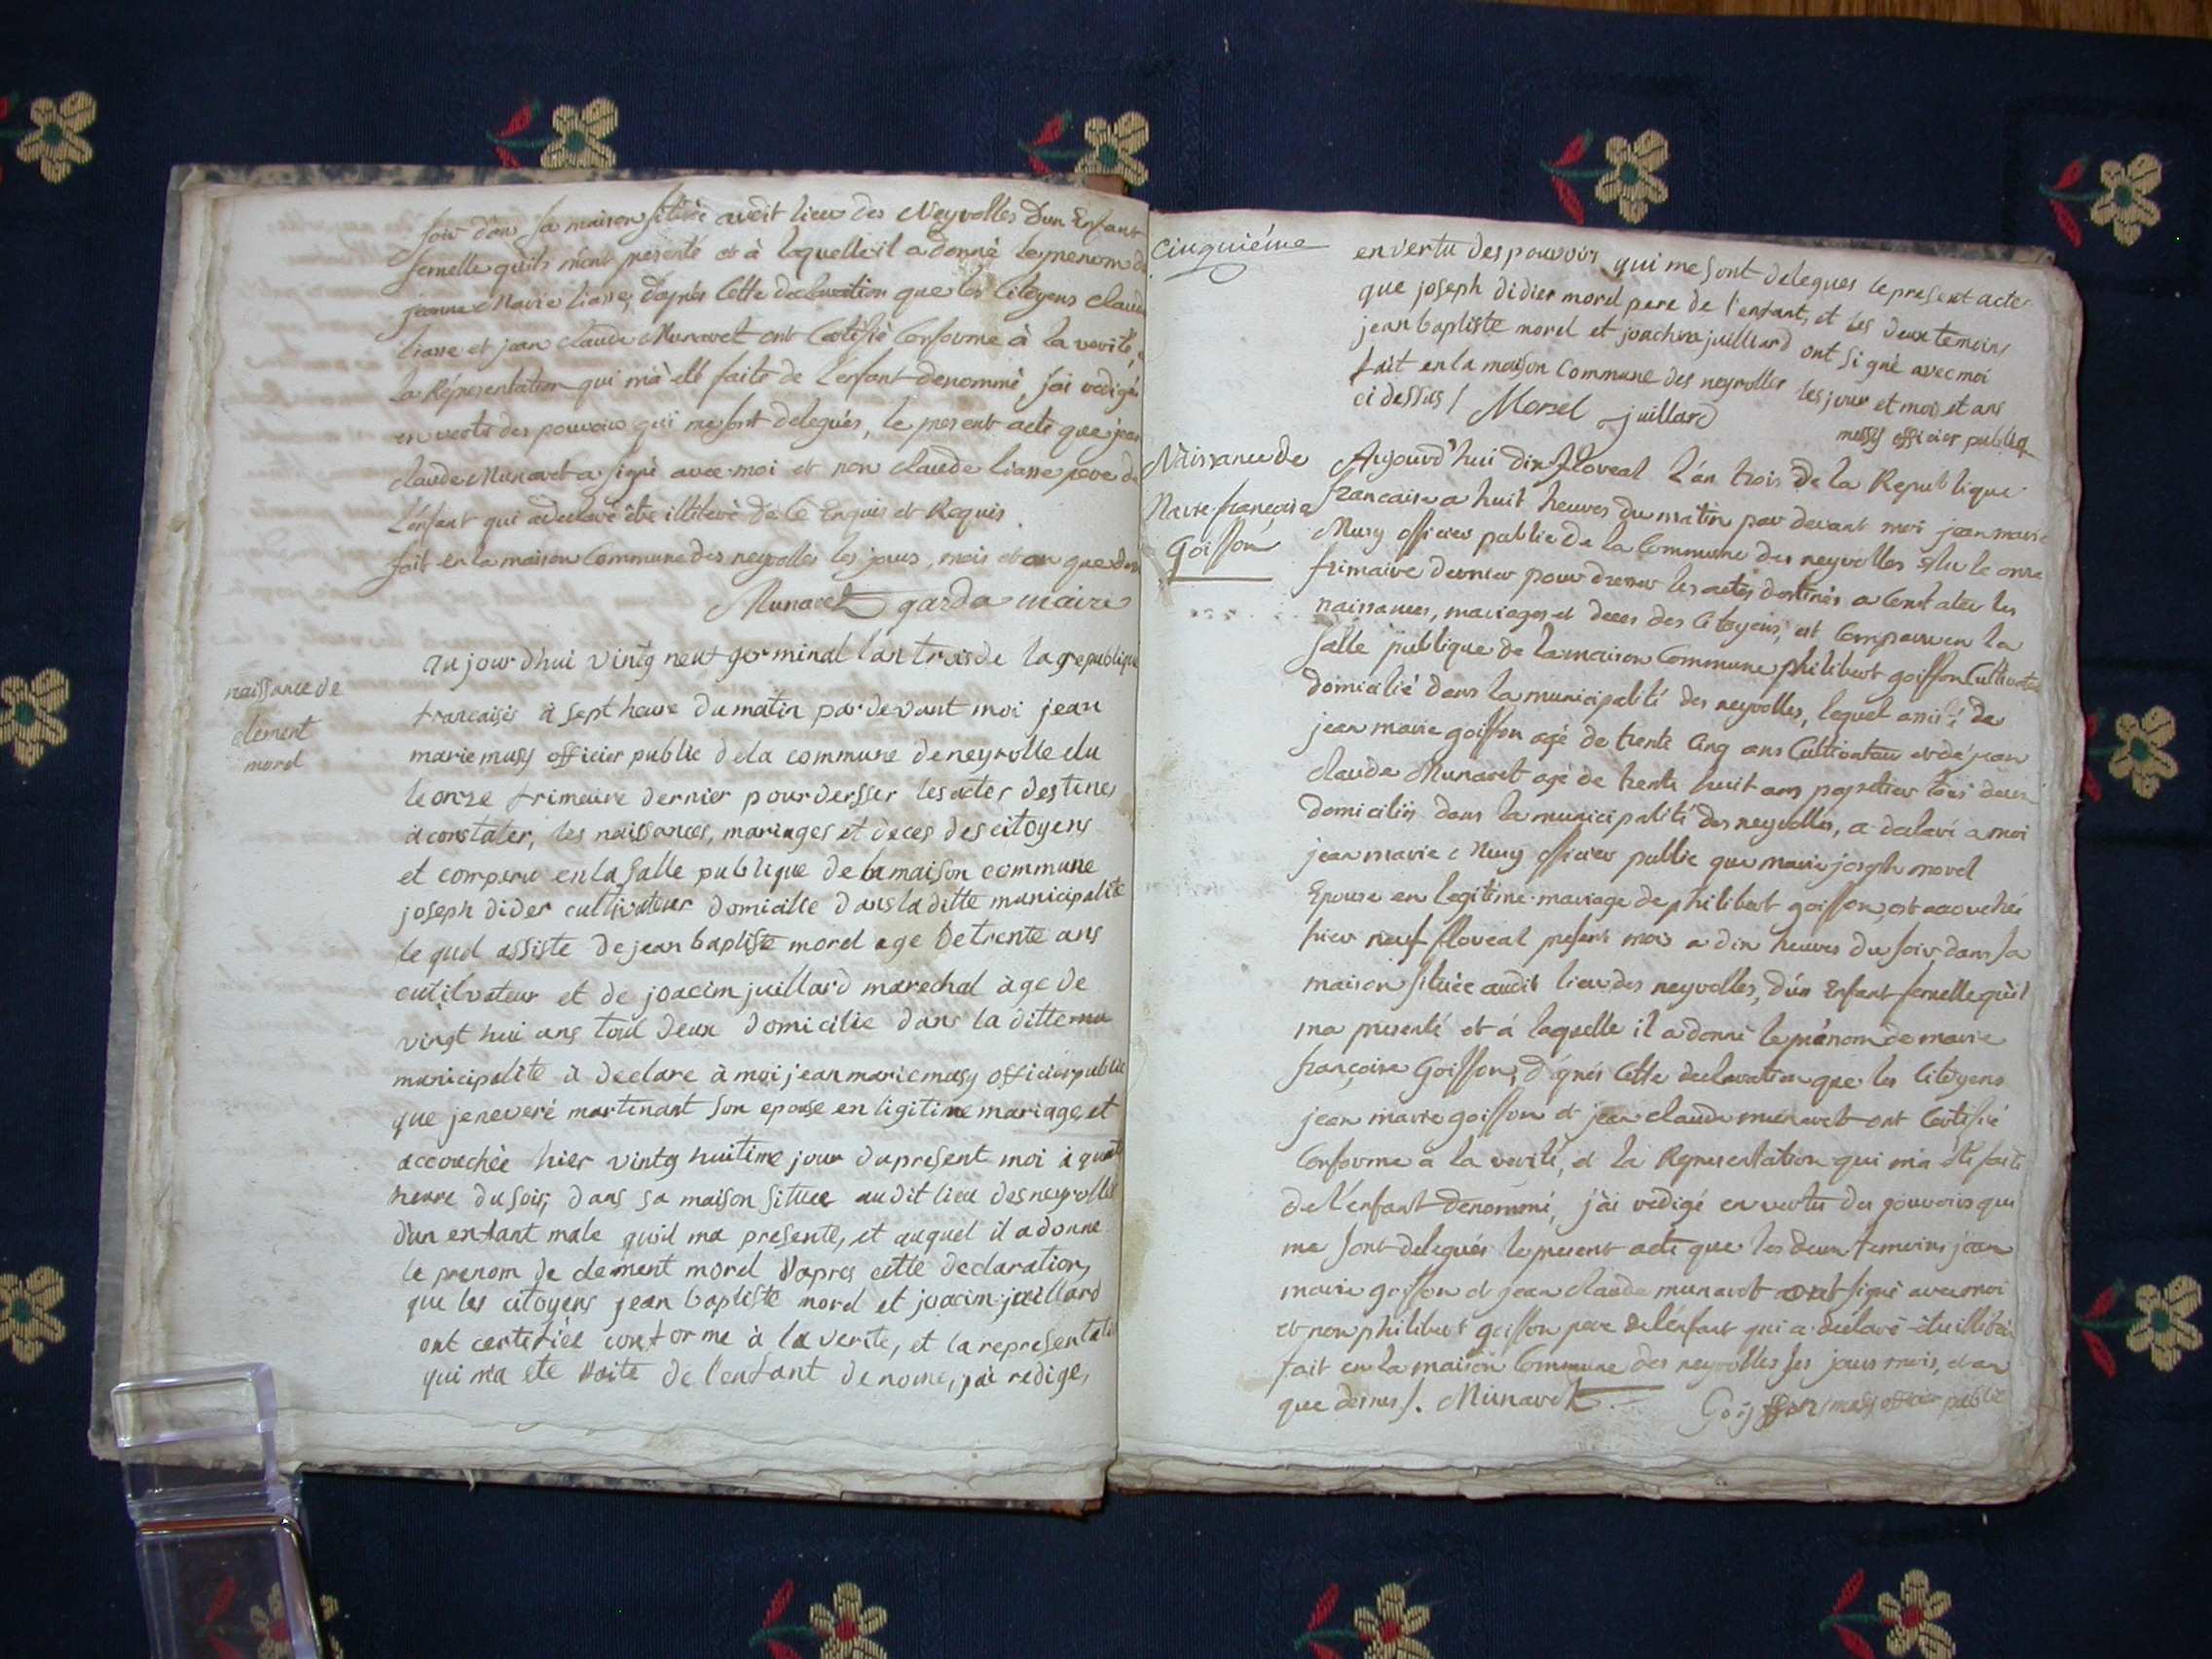 soir dans sa maison située audit lieu des Neyrolles d'un Enfant
femelle qu'ils m'ont presenté et à laquelle il a donné le prenom de
jeanne Marie liasse, d'après Cette declaration que les Citoyens claude
liasse et jean claude Munavet ont Certifié Conforme à la verité,
la Répresentation qui m'à été faite de L'enfant denommé, j'ai redigé
en vertu des pouvoirs qui me sont delegués, le present acte que jean
claude Munavet a signé avec moi et non claude liasse pere de
L'enfant qui a declaré être illiteré de Ce Enquis et Requis
fait en la maison Commune des neyrolles les jours, mois et an que dessus
Munavet garda maire
naissance de
clement
morel
aujourdhui vintg neuf germinal lan trois de la republique
francaises à sept heure du matin par devant moi jean
marie musy officier public de la commune de neyrolle elu
le onze frimeaire dernier pour dersser les actes destines
à constater, les naissances, mariages et deces des citoyens
et comparu en la salle publique de la maison commune
joseph dider cultivateur domicilie dans la ditte municipalite
le quel assiste de jean baptiste morel age de trente ans
cutilvateur et de joacim juillard marechal àge de
vingt hui ans tout deux domicilie dans la ditte mu
municipalite à declare à moi jean marie musy officier public
que jenevere martinant son epouse en ligitime mariage, et
accouchèe hier vintg huitime jour du present moi à quatre
heure du soir, dans sa maison situee audit lieu des neyrolles
d'un enfant male quil ma presente, et auquel il a donne
le prenom de clement morel d'apres cette declaration,
que les citoyens jean baptiste morel et joacim juillard
ont certifiée conforme à la verite, et la representati
qui m'a ete faite de l'enfant denome, j'ai redige,
Cinquiéme
en vertu des pouvoirs qui me sont delegues le present acte
que joseph didier morel pere de l'enfant, et les deux temoins
jean baptiste morel et joachim juilliard ont signé avec moi
fait en la maison commune des neyrolles les jour et mois et ans
ci dessus / Morel juillard
mussy officier publiq
Naissance de
Marie françoise
Goiffon
Aujourd'hui dix floreal L'an trois de la Republique
francaise a huit heures du matin par devant moi jean marie
Musy officier public de la Commune des neyrolles Elu le onze
frimaire dernier pour dresser les actes destinés a Constater les
naissances, mariages et deces des Citoyens, est Comparu en la
salle publique de la maison Commune philibert goiffon Cultivateur
domicilié dans la municipalité des neyrolles, lequel assisté de
jean marie goiffon agé de trente Cinq ans Cultivateur et de jean
claude Munavet agé de trente huit ans papetier tous deux
domiciliés dans la municipalité des neyrolles, a declaré a moi
jean marie Musy officier public que marie joseph morel
Epouse en legitime mariage de philibert goiffon, est accouchée
hier neuf floreal present mois a dix heures du soir, dans sa
maison située audit lieu des neyrolles, d'un Enfant femelle qu'il
ma presenté et á laquelle il a donné le prénom de marie
françoise Goiffon, d'après Cette declaration que les Citoyens
jean marie goiffon et jean claude munavet ont Certifié
Conforme à la verité, et la Representation qui m'a été faite
de L'enfant denommé, j'ài redigé en vertu des pouvoirs qui
me sont delegués le present acte que les deux temoins jean
marie goiffon et jean claude munavet ont signé avec moi
et non philibert goiffon pere de l'énfant qui a declaré
fait en la maison Commune des neyrolles les jours mois, et an
que dessus /. Munavet
Goiffon musy officier public